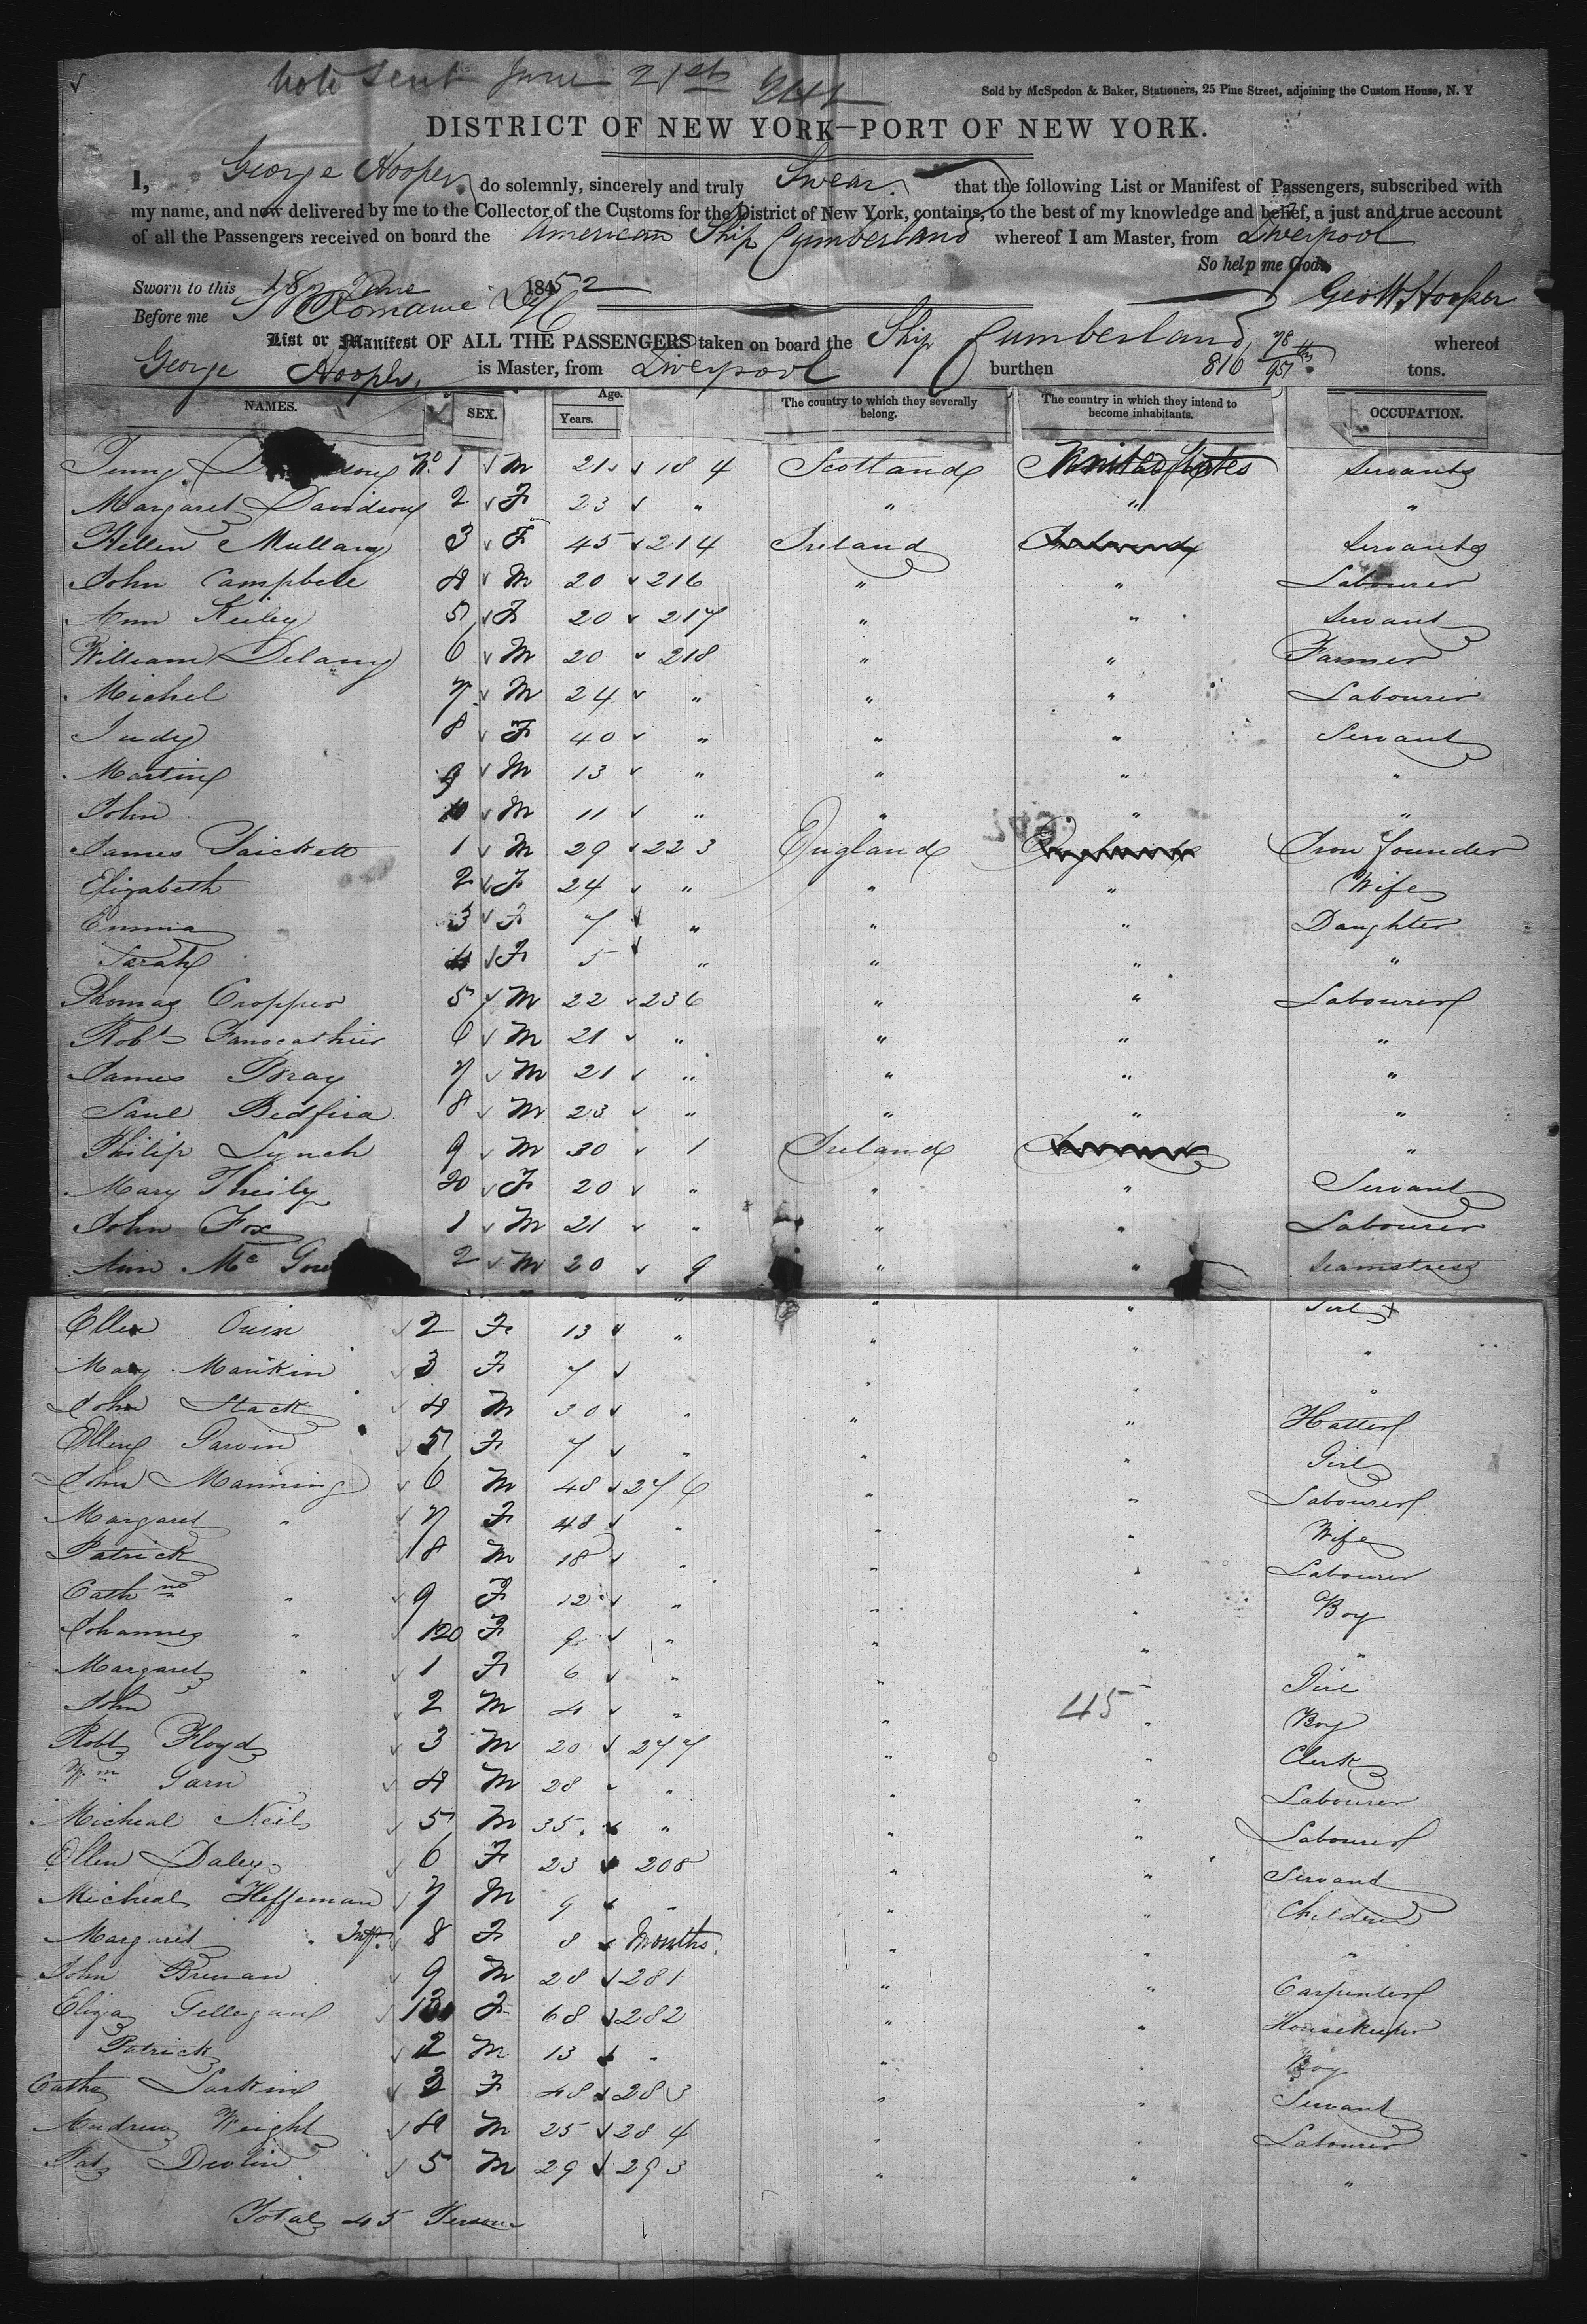 Note sent June 21st
Sold by McSpedon & Baker, Stationers, 25 Pine Street, adjoining the Custom House, N. Y
DISTRICT OF NEW YORK—PORT OF NEW YORK.
I, George Hooper do solemnly, sincerely and truly Swear that the following List or Manifest of Passengers, subscribed with
my name, and now delivered by me to the Collector of the Customs for the District of New York, contains, to the best of my knowledge and belief, a just and true account
of all the Passengers received on board the American Ship Cumberland whereof I am Master, from Liverpool
So help me God.
Sworn to this 18 June 1852
Before me Romaine Geo W. Hooper
List or Manifest OF ALL THE PASSENGERS taken on board the Ship Cumberland, whereof
George Hooper, is Master, from Liverpool burthen 816 78/95 tons.
NAMES. SEX. Age. Years. The country to which they severally belong. The country in which they intend to become inhabitants. OCCUPATION.
No. 1 M 21 18 4 Scotland United States Servant
Margaret Davidson 2 F 23 " " " "
Hellen Mullany 3 F 45 214 Ireland Servant
John Campbell 4 M 20 216 " " Labourer
Ann Keiley 5 F 20 217 " " Servant
William Delany 6 M 20 218 " " Farmer
Michel 7 M 24 " " " Labourer
Judy 8 F 40 " " " Servant
Martin 9 M 13 " " " "
John 10 M 11 " " " "
James 1 M 29 223 England Iron founder
Elizabeth 2 F 24 " " " Wife
Emma 3 F 7 " " " Daughter
Sarah 4 F 5 " " " "
Thomas Cropper 5 M 22 236 " " Labourer
Robt 6 M 21 " " " "
James Bray 7 M 21 " " " "
8 M 23 " " " "
Philip Lynch 9 M 30 1 Ireland "
Mary 20 F 20 " " " Servant
John Fox 1 M 21 " " " Labourer
Ann Mc 2 M 20 9 " " Seamstress
Ellen 2 F 13 " " "
Mary Mankin 3 F 7 " " "
John Stack 4 M 30 " " " Hatter
Ellen Garvin 5 F 7 " " " Girl
John Manning 6 M 48 276 " " Labourer
Margaret " 7 F 48 " " " Wife
Patrick 8 M 18 " " " Labourer
Cathne " 9 F 12 " " " Boy
Johannes " 120 F 9 " " " "
Margaret " 1 F 6 " " " Girl
John 2 M 4 " " 45 " Boy
Robt Floyd 3 M 20 277 " " Clerk
Wm Garn 4 M 28 " " " Labourer
Micheal Neil 5 M 35 " " " Labourer
Ellen Daley 6 F 23 208 " " Servant
Micheal Heffernan 7 M 9 " " " Children
Margaret Inft. 8 F 8 Months. " " "
John Brenan 9 M 28 281 " " Carpenter
Eliza F 68 282 " " Housekeeper
Patrick 2 M 13 " " " Boy
Cathe Larkin 3 F 48 283 " " Servant
Andrew Weight 4 M 25 284 " " Labourer
Pat Devlin 5 M 29 293 " " "
Total 45 Persons